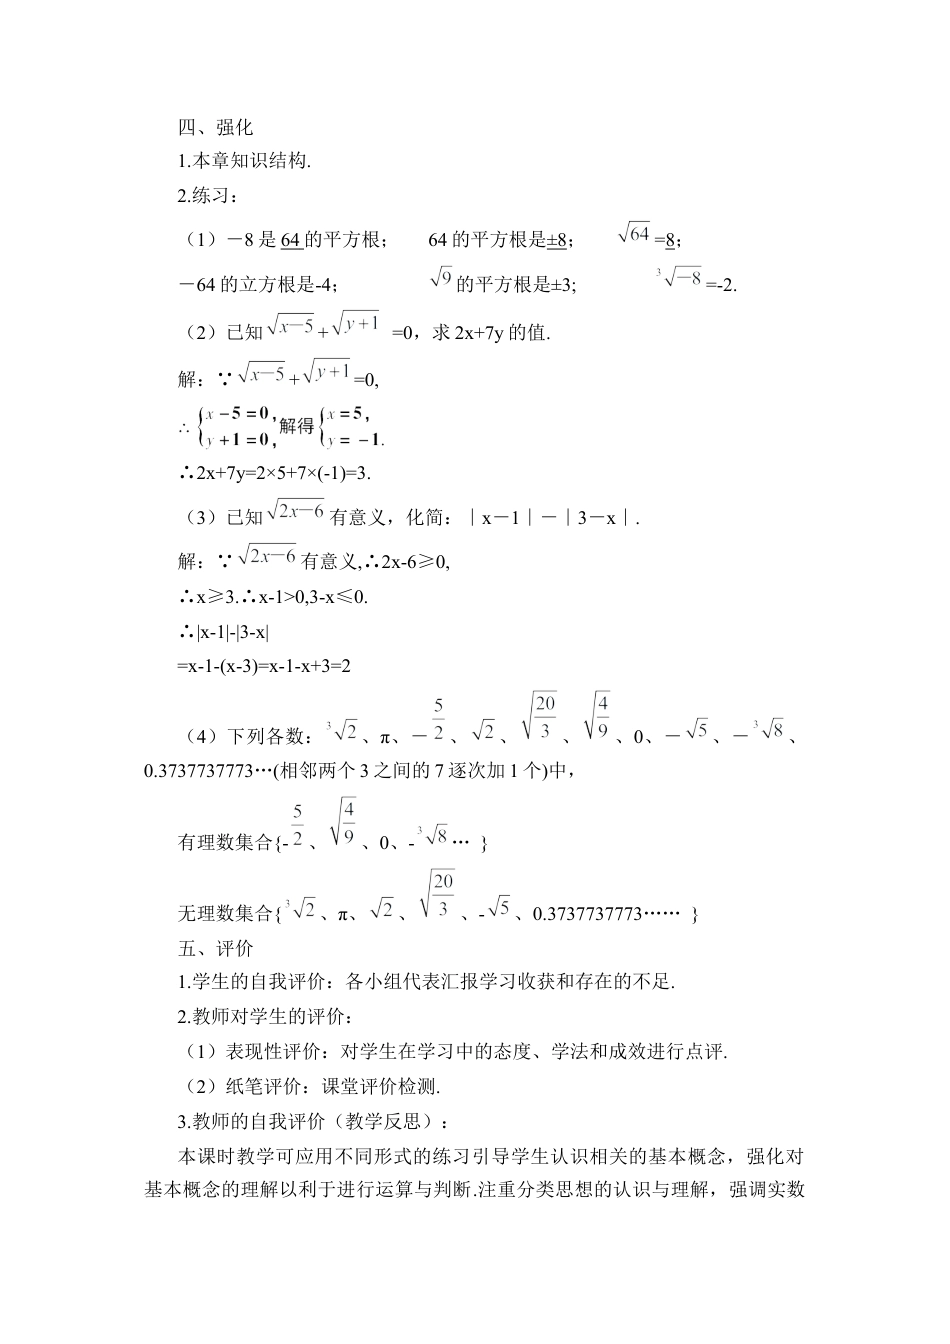 四、强化
1.本章知识结构.
2.练习：
（1）－8 是 64 的平方根； 64 的平方根是±8； √64 =8；
－64 的立方根是-4； √9 的平方根是±3; ³√－8 =-2.
（2）已知 √x－5 + √y＋1 =0，求 2x+7y 的值.
解：∵ √x－5 + √y＋1 =0,
∴ {x－5＝0, y＋1＝0, 解得 {x＝5, y＝－1.
∴2x+7y=2×5+7×(-1)=3.
（3）已知 √2x－6 有意义，化简：｜x－1｜－｜3－x｜.
解：∵ √2x－6 有意义,∴2x-6≥0,
∴x≥3.∴x-1>0,3-x≤0.
∴|x-1|-|3-x|
=x-1-(x-3)=x-1-x+3=2
（4）下列各数： ³√2 、π、－5/2 、 √2 、 √(20/3) 、 √(4/9) 、0、－√5 、－³√8 、
0.3737737773…(相邻两个 3 之间的 7 逐次加 1 个)中，
有理数集合{-5/2 、 √(4/9) 、0、-³√8 … }
无理数集合{ ³√2 、π、 √2 、 √(20/3) 、-√5 、0.3737737773…… }
五、评价
1.学生的自我评价：各小组代表汇报学习收获和存在的不足.
2.教师对学生的评价：
（1）表现性评价：对学生在学习中的态度、学法和成效进行点评.
（2）纸笔评价：课堂评价检测.
3.教师的自我评价（教学反思）：
本课时教学可应用不同形式的练习引导学生认识相关的基本概念，强化对
基本概念的理解以利于进行运算与判断.注重分类思想的认识与理解，强调实数